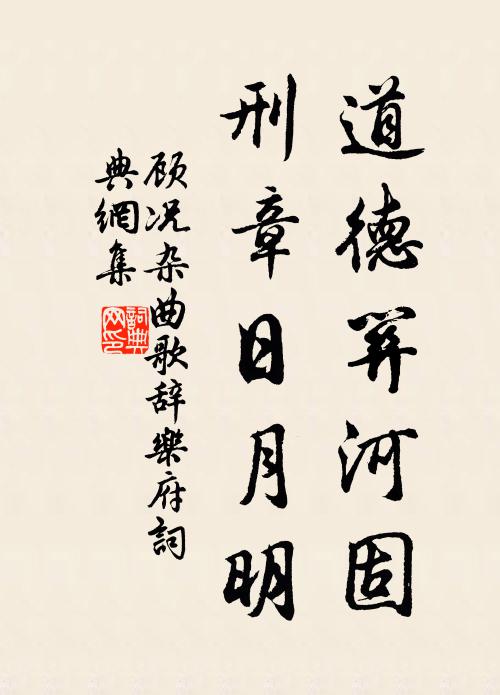 道德關河固
刑章日月明
顾况杂曲歌辞樂府詞
典網集
詞典
网印